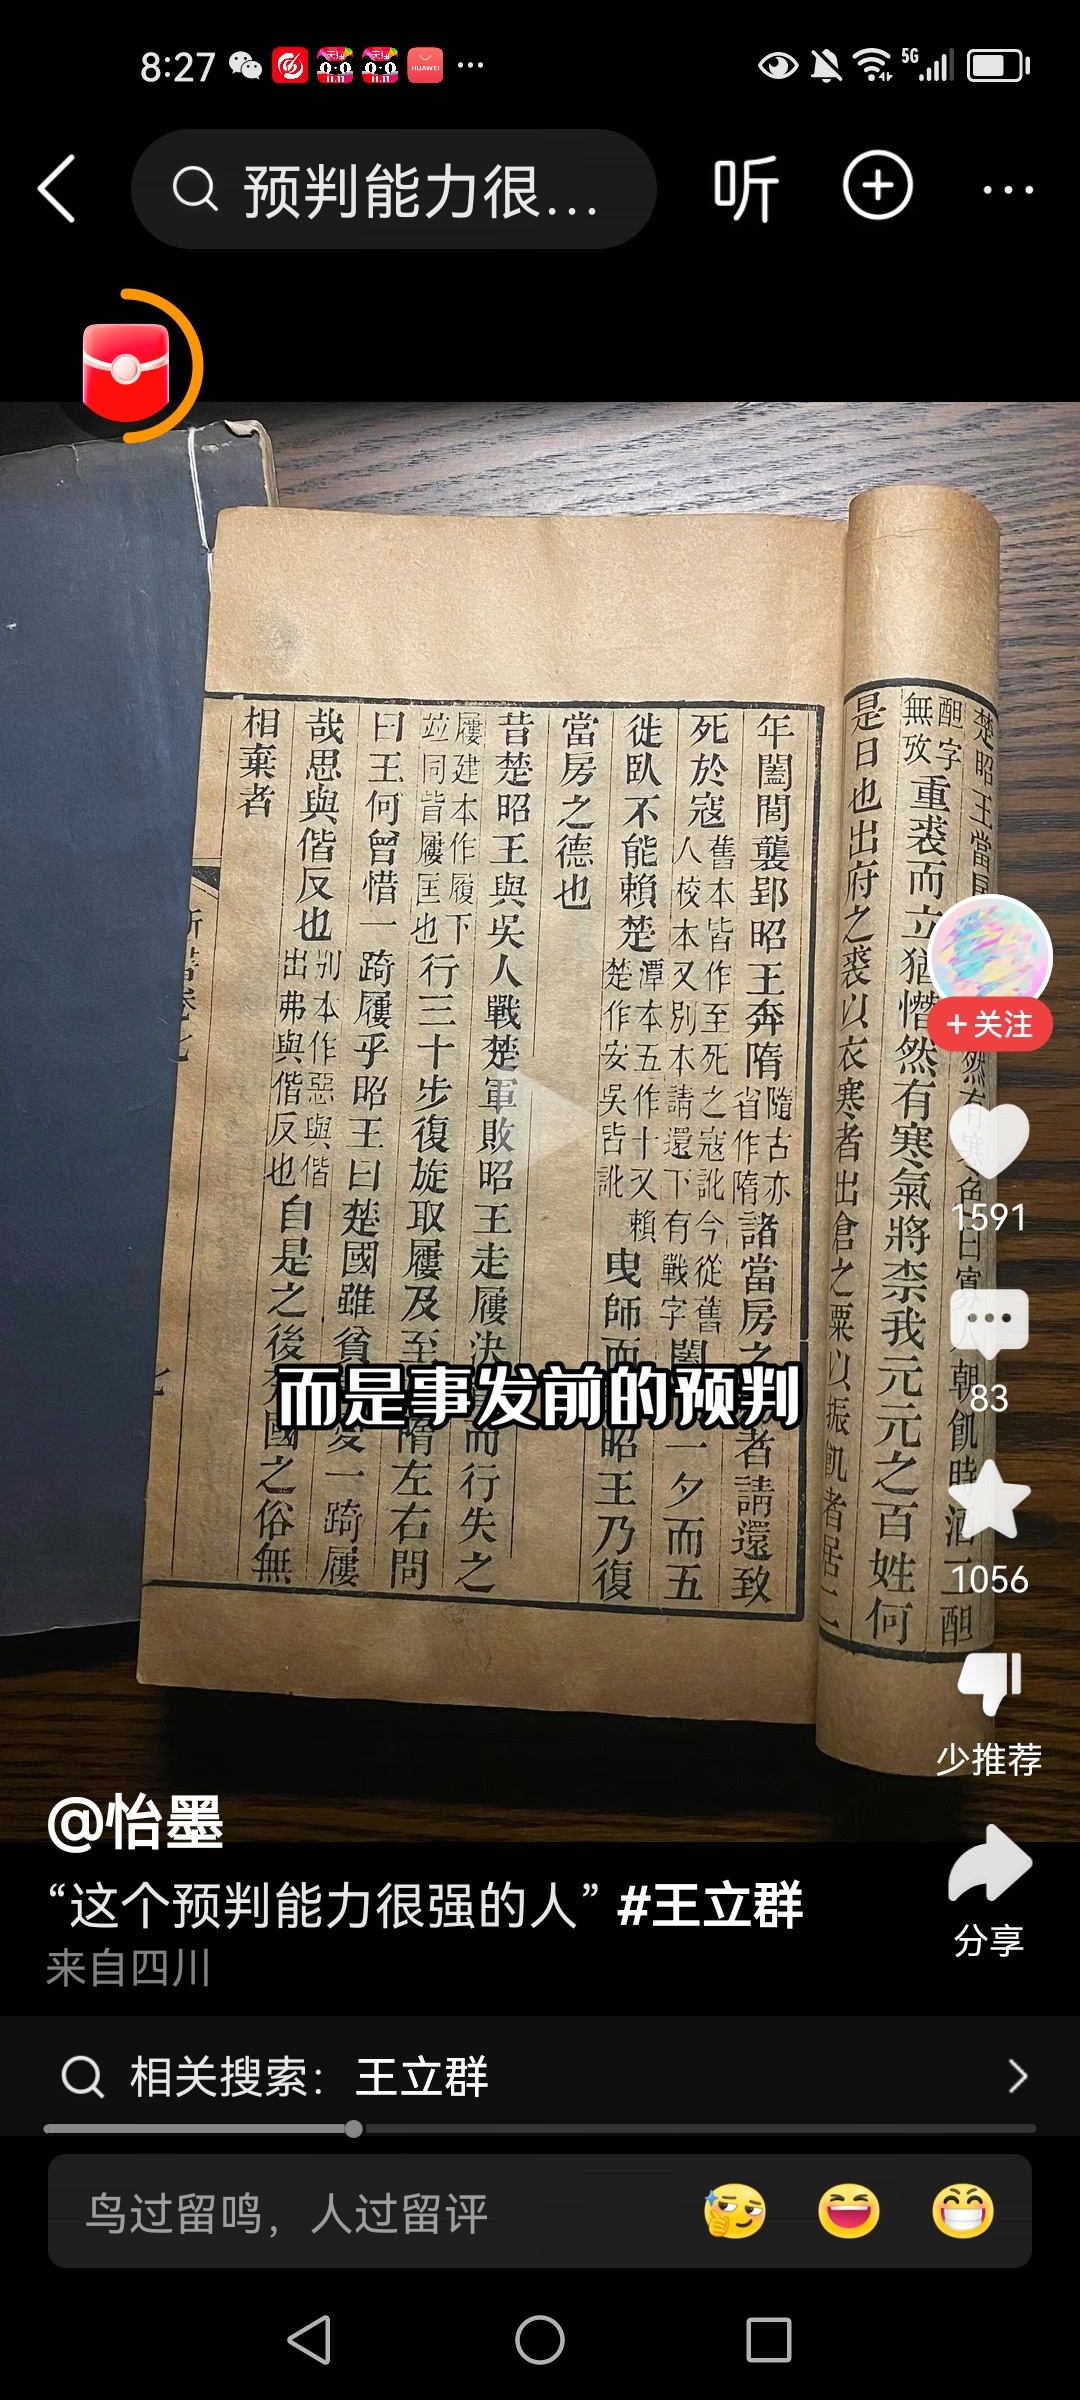 8:27
5G
HUAWEI
11.11
11.11
预判能力很…
听
年闔閭襲郢昭王奔隋
隨古亦
省作隋
諸當房之
者請還致
死於寇
舊本皆作至死之寇訛今從舊
人校本又別本請還下有戰字
闔
一夕而五
徙臥不能賴楚
潭本五作十又賴
楚作安吳皆訛
曳師而
昭王乃復
當房之德也
昔楚昭王與吳人戰楚軍敗昭王走屨決
而行失之
屨建本作履下
竝同皆屨匡也
行三十步復旋取屨及至
隋左右問
曰王何曾惜一踦屨乎昭王曰楚國雖貧
愛一踦屨
哉思與偕反也
別本作惡與偕
出弗與偕反也
自是之後
國之俗無
相棄者
楚昭王當
酲字
無攷
重裘而立猶憯然有寒氣將柰我元元之百姓何
是日也出府之裘以衣寒者出倉之粟以振飢者居二
而是事发前的预判
+关注
1591
83
1056
少推荐
分享
@怡墨
“这个预判能力很强的人” #王立群
来自四川
相关搜索：王立群
鸟过留鸣，人过留评